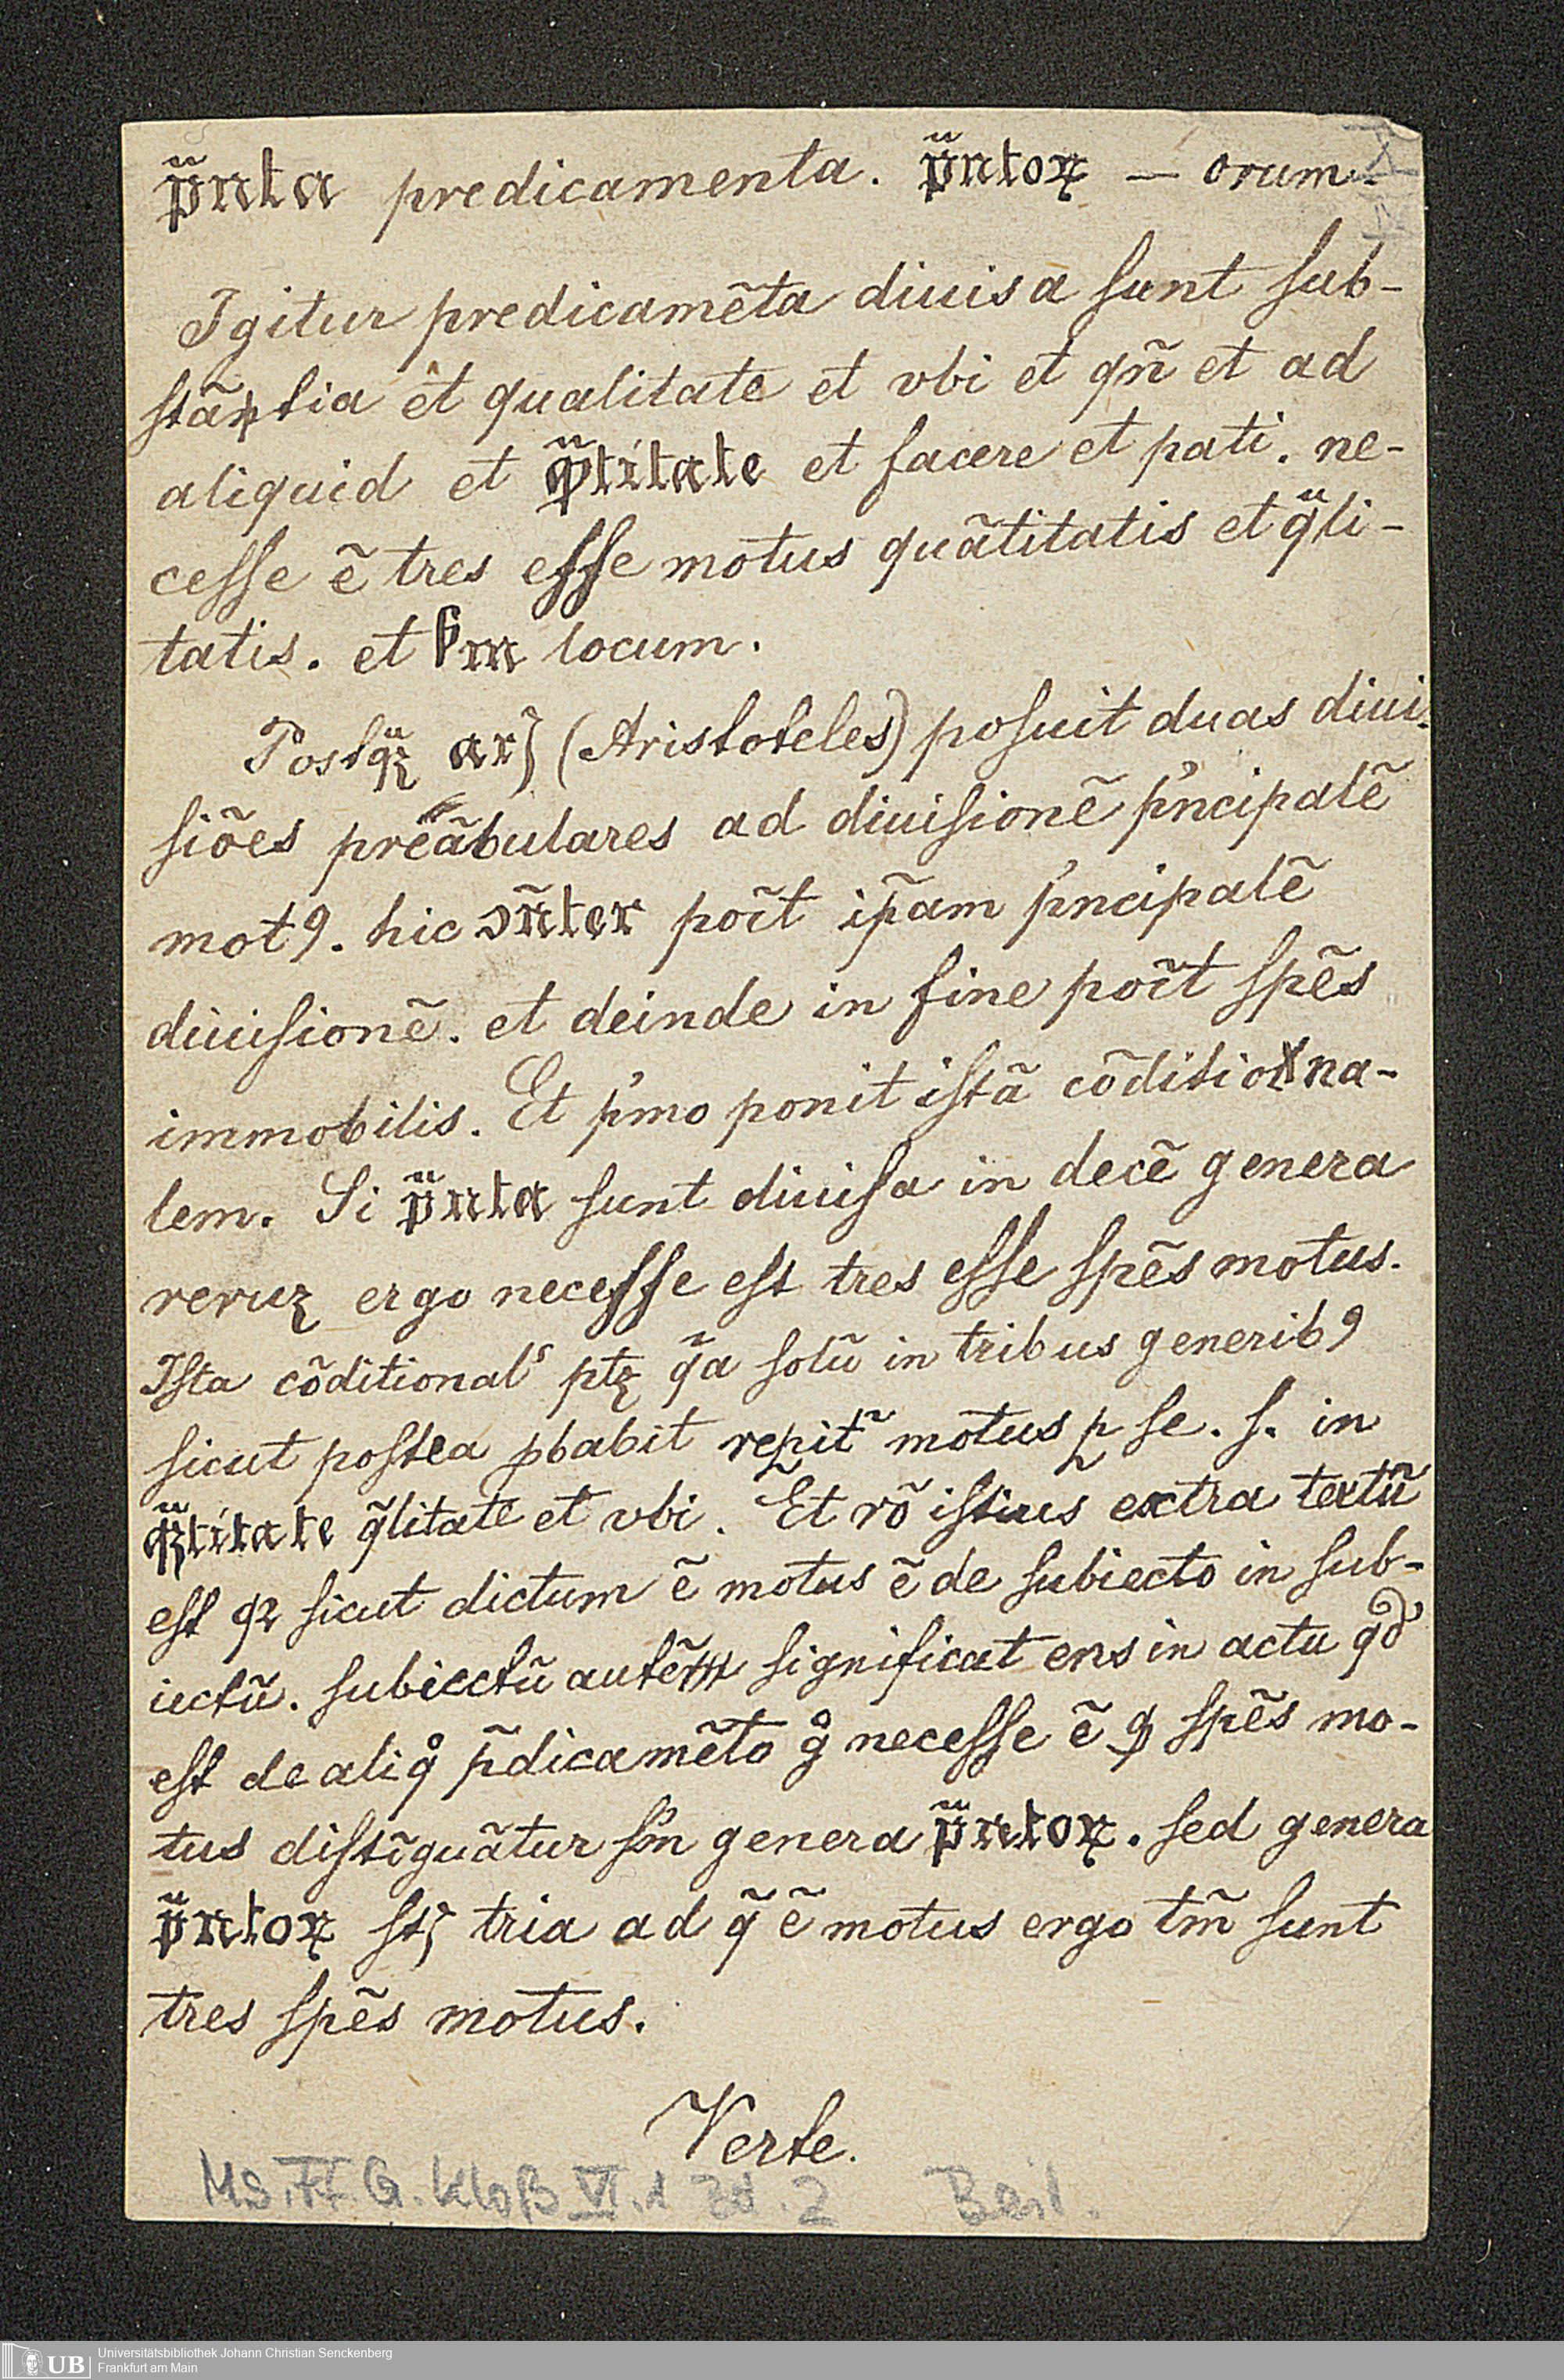 p̃nta predicamenta. p̃ntoꝝ — orum.
Igitur predicamẽta diuisa sunt sub-
stãtia et qualitate et vbi et qñ et ad
aliquid et q̃titate et facere et pati. ne-
ceſſe ẽ tres eſſe motus quãtitatis et q̃li-
tatis. et ſm locum.
Postqꝫ ar̃ (Aristoteles) poſuit duas diui-
ſiões preãbulares ad diuiſionẽ p'ncipalẽ
motꝰ. hic ↄñter põit ip̃am p'ncipalẽ
diuiſionẽ. et deinde in fine põit ſpẽs
immobilis. Et p'mo ponit iſtã cõditiona-
lem. Si p̃nta sunt diuiſa in decẽ genera
reruꝫ ergo neceſſe eſt tres eſſe ſpẽs motus.
Iſta cõditionalˢ ptꝫ q̃a solũ in tribus generibꝰ
ſicut poſtea ꝓbabit reꝑit᷉ motus ꝑ ſe. ſ. in
q̃titate q̃litate et vbi. Et rõ iſtius extra textũ
eſt qꝛ ſicut dictum ẽ motus ẽ de ſubiecto in ſub-
iectũ. ſubiectũ autẽ ſignificat ens in actu qd'
eſt de aliqͦ p̃dicamẽto gͦ neceſſe ẽ ꝙ ſpẽs mo-
tus diſtĩguãtur ſm̃ genera p̃ntoꝝ. sed genera
p̃ntoꝝ ſt̃ tria ad q̃ ẽ motus ergo tm̃ sunt
tres ſpẽs motus.
Verte.
Ms. Ff. G. Kloß VI. 1 Bd. 2 Beil.
UB
Universitätsbibliothek Johann Christian Senckenberg
Frankfurt am Main